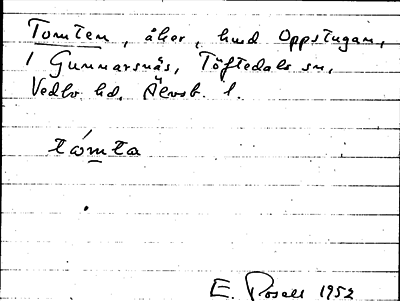 Tomten, åker, hmd Oppstugan,
i Gunnarsnäs, Töftedals sn,
Vedbo hd. Älvsb. l.
tómta
E. Rosell 1952